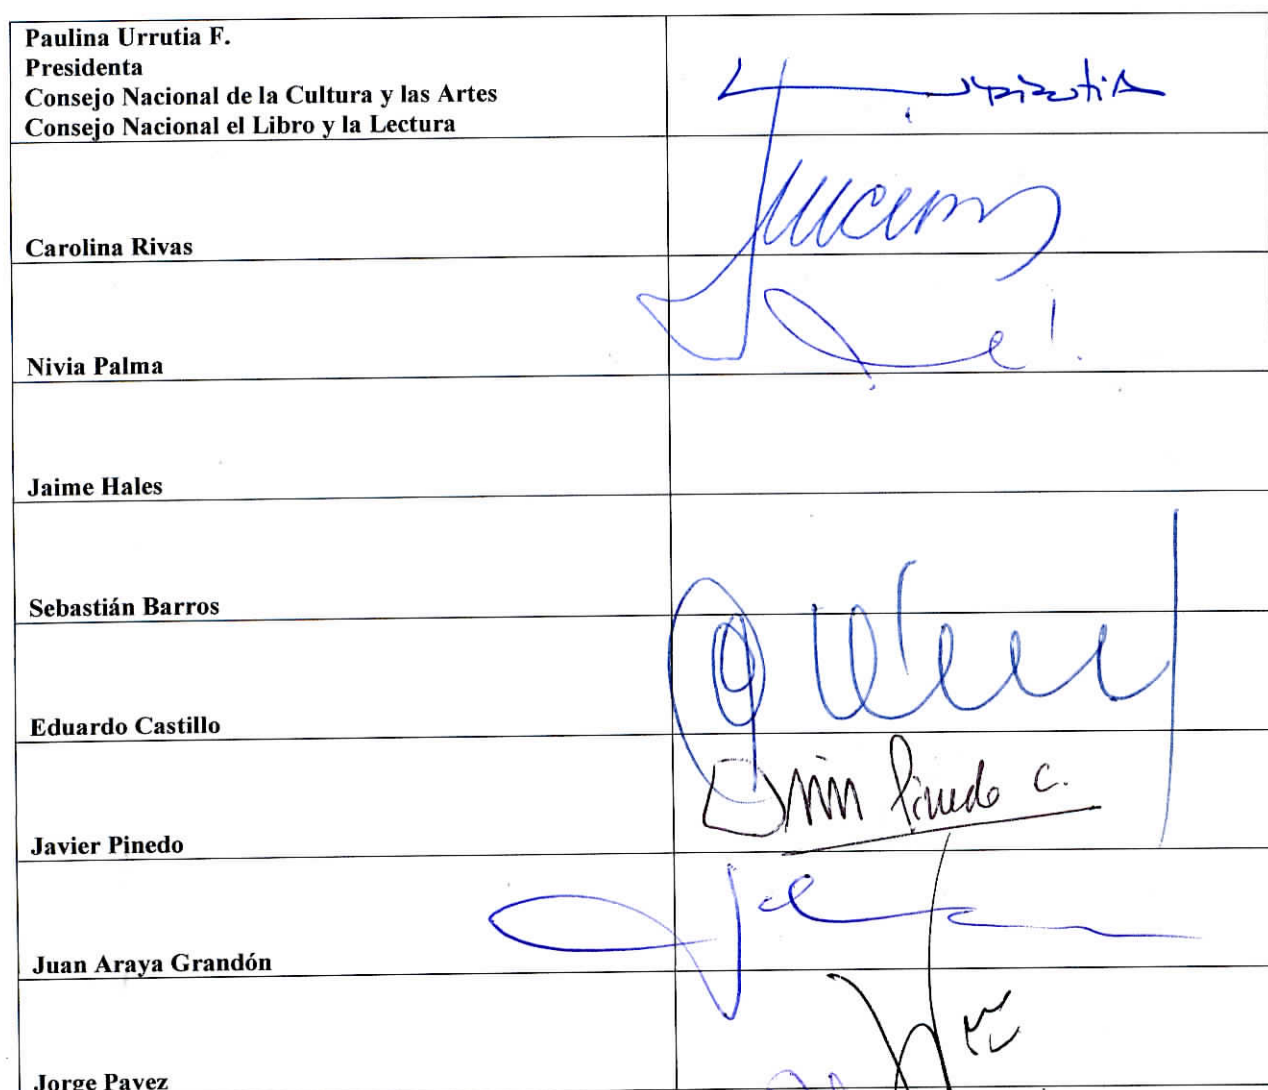 Paulina Urrutia F.
Presidenta
Consejo Nacional de la Cultura y las Artes
Consejo Nacional el Libro y la Lectura
Carolina Rivas
Nivia Palma
Jaime Hales
Sebastián Barros
Eduardo Castillo
Pinedo C.
Javier Pinedo
Juan Araya Grandón
Jorge Pavez